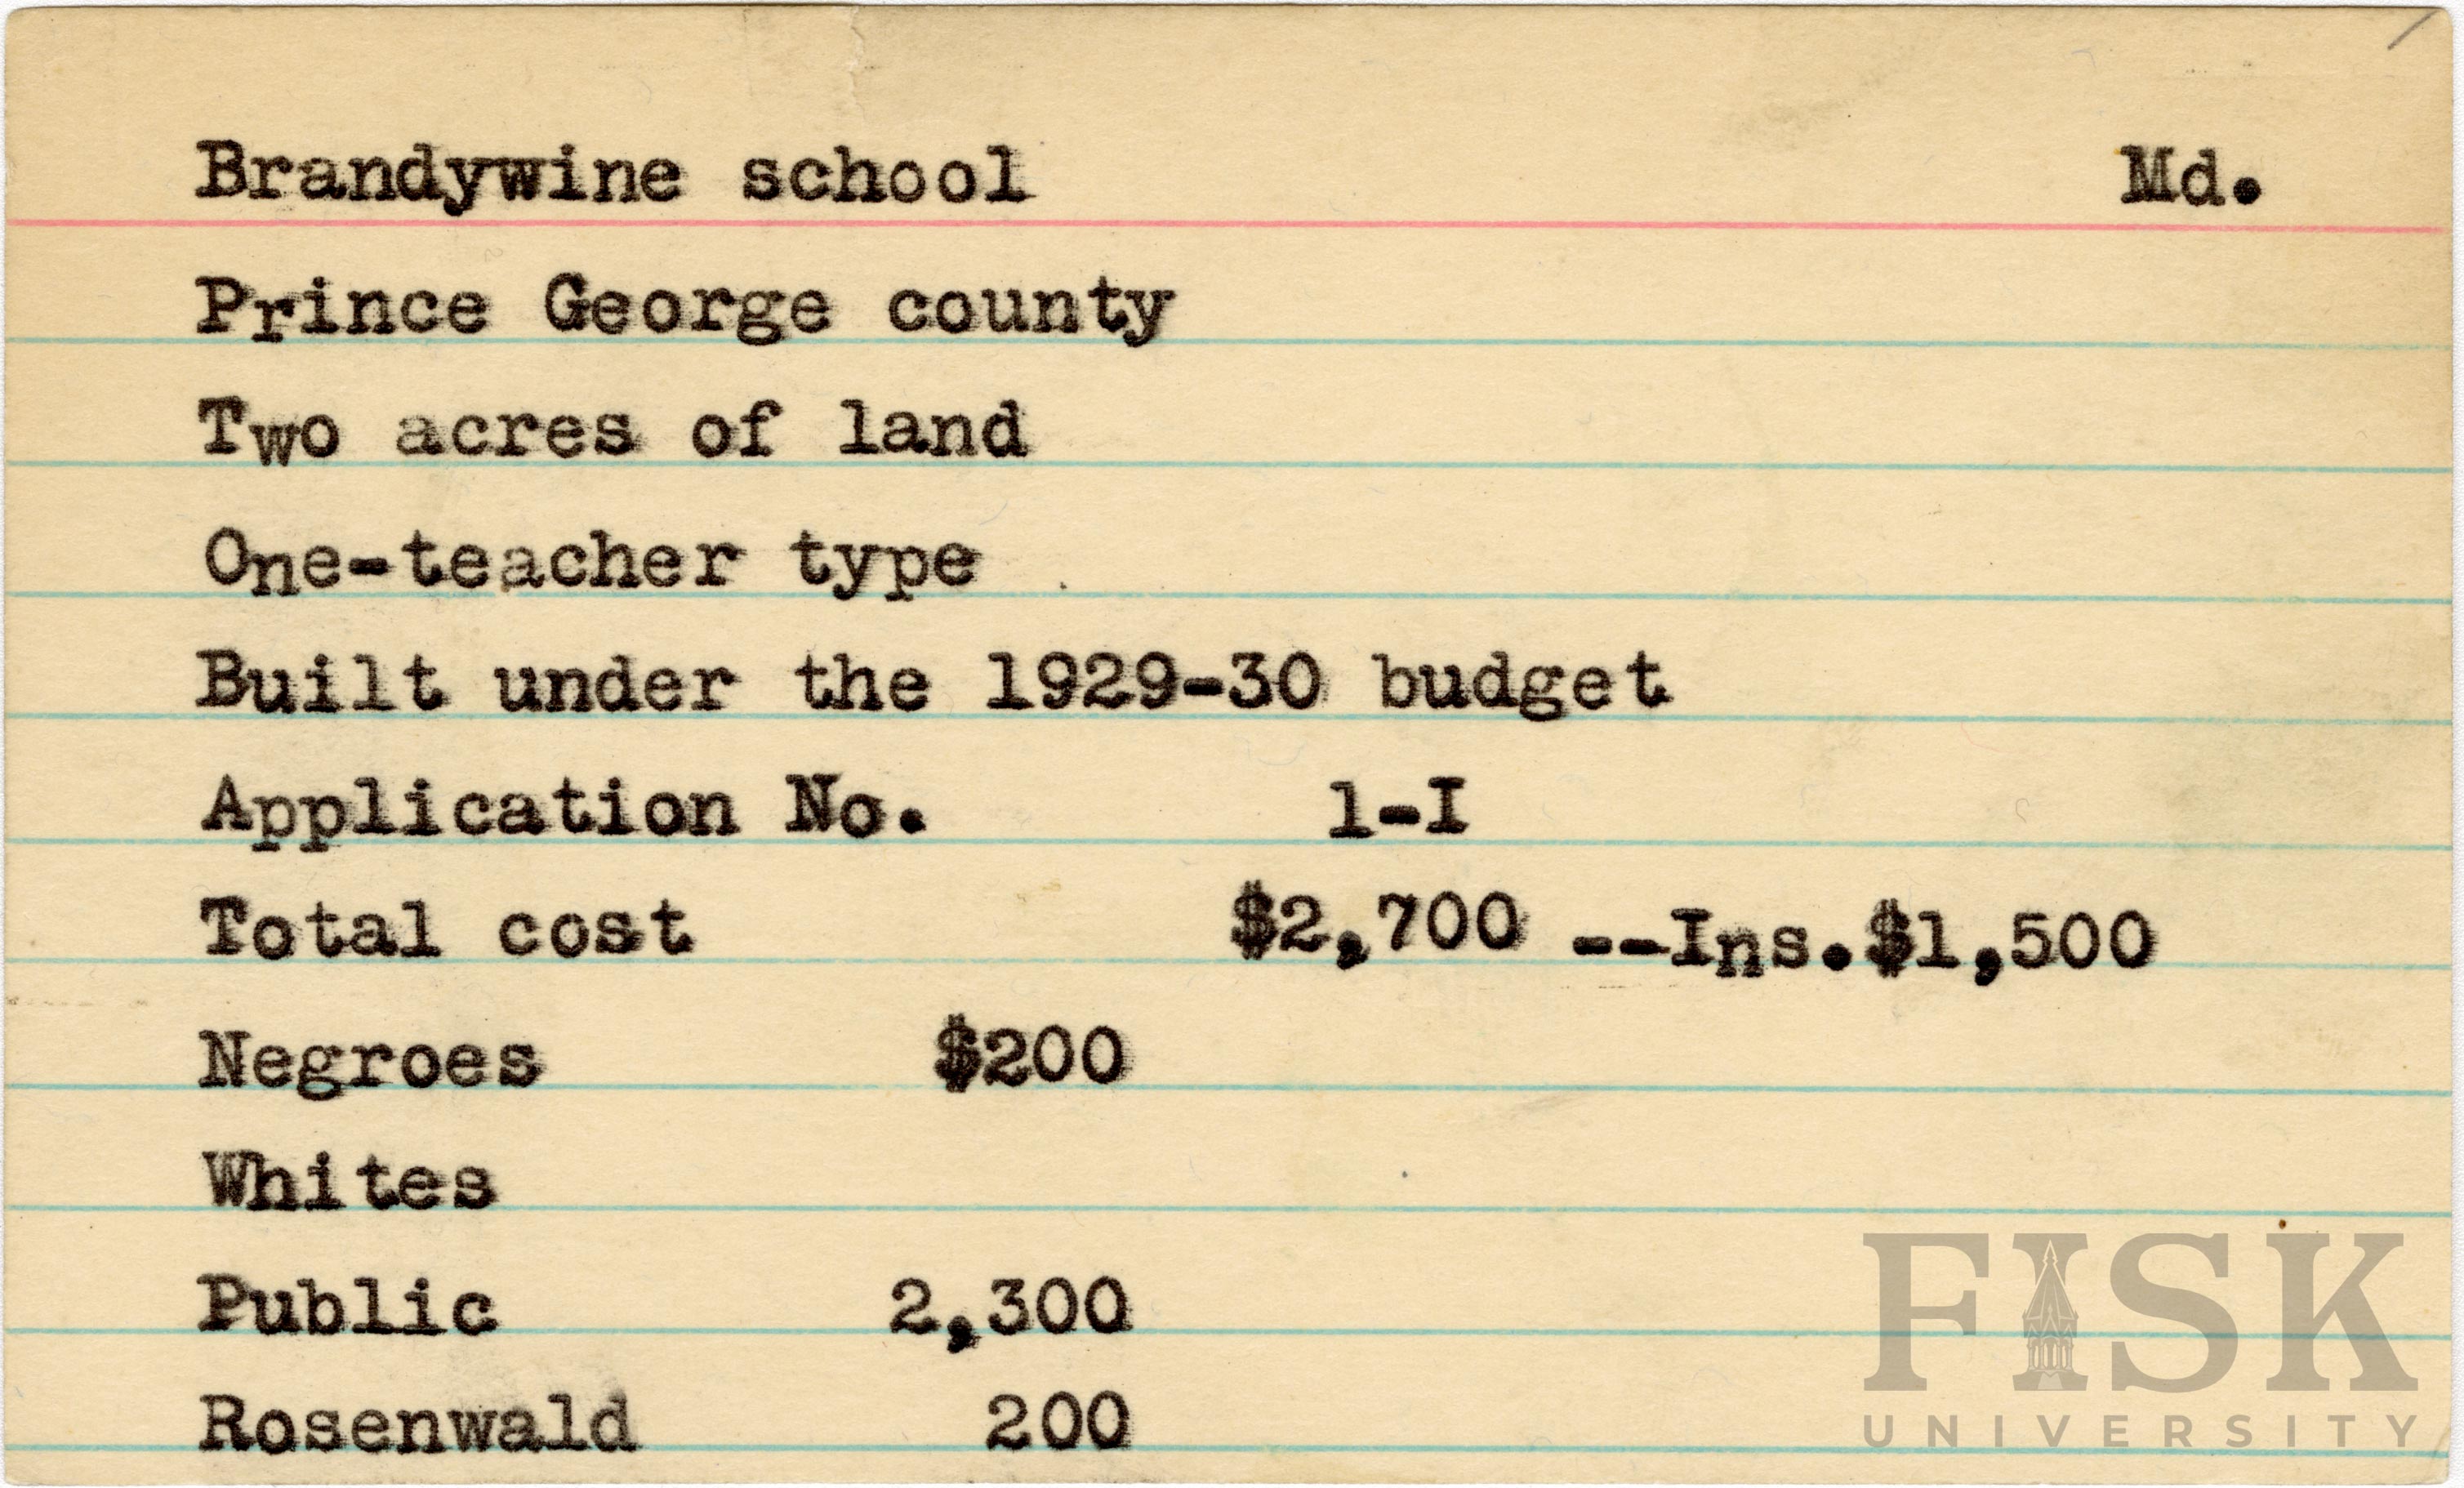 Brandywine school Md.
Prince George county
Two acres of land
One-teacher type
Built under the 1929-30 budget
Application No. 1-I
Total cost $2,700 --Ins.$1,500
Negroes $200
Whites
Public 2,300
Rosenwald 200
FISK
UNIVERSITY